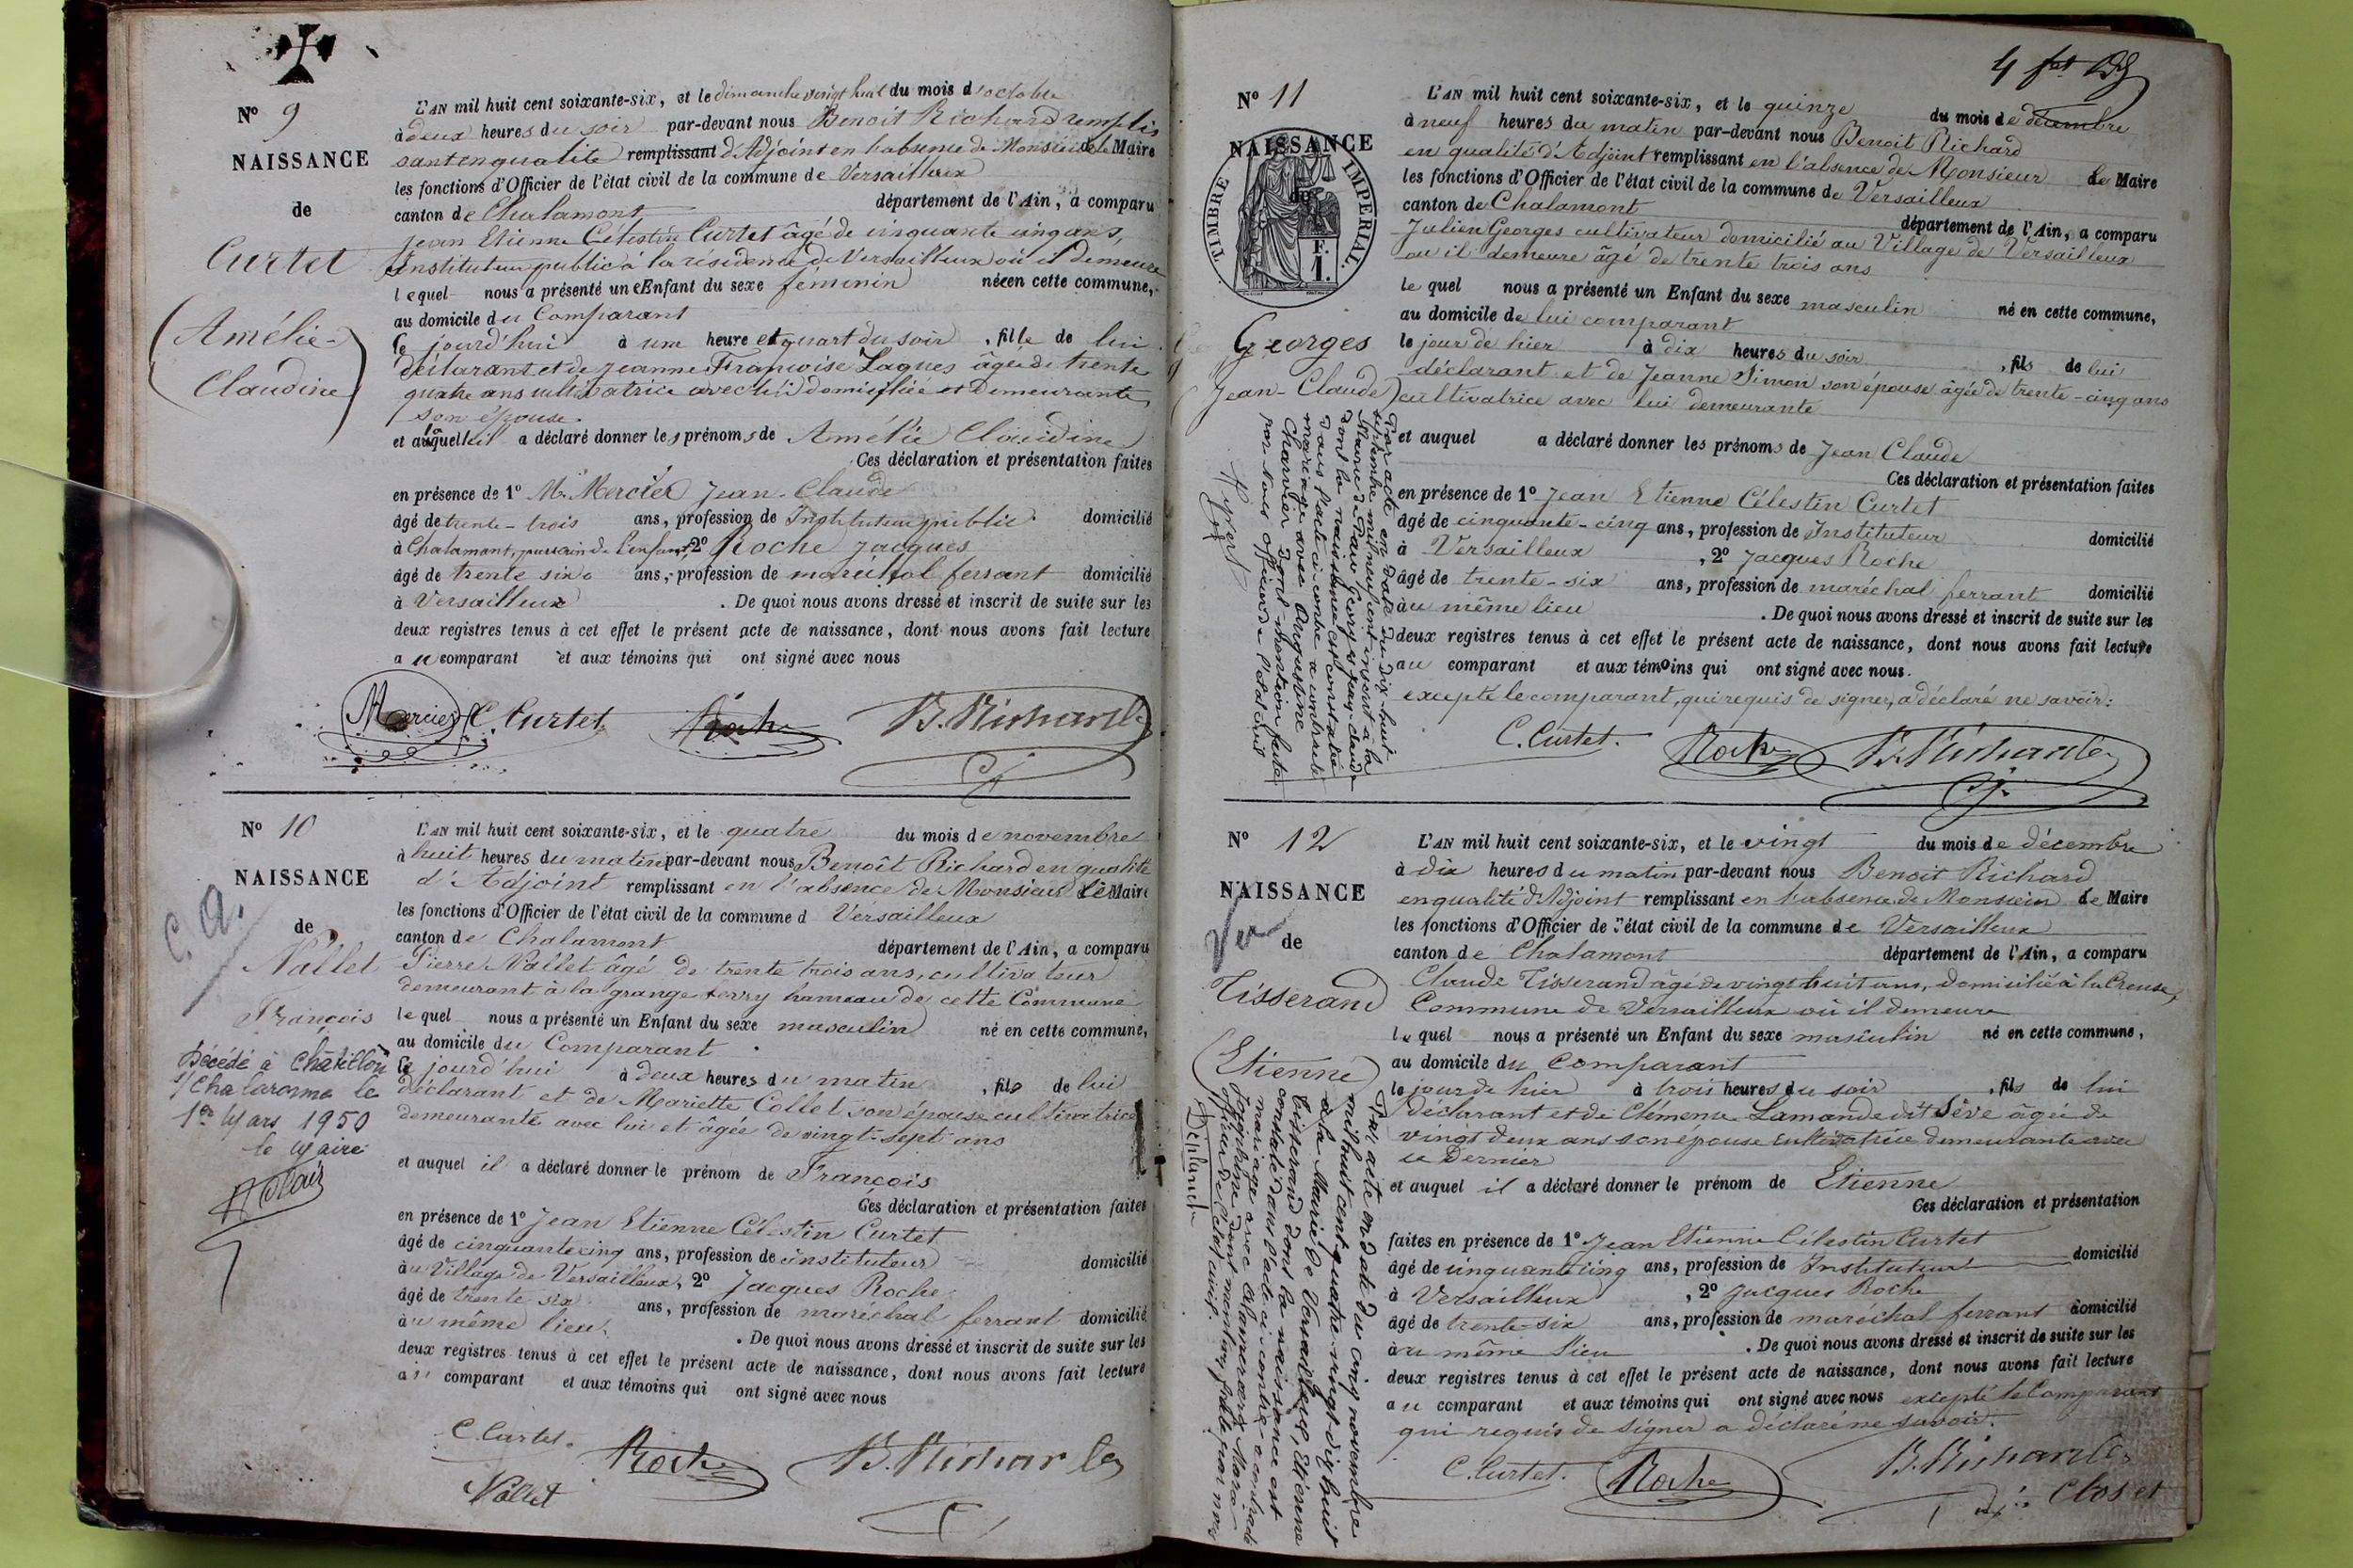 N° 9
NAISSANCE
de
Curtet
(Amélie-
Claudine)
L'AN mil huit cent soixante-six, et le dimanche vingt huit du mois d'octobre
à deux heures du soir par-devant nous Benoit Richard remplis
sant en qualité remplissant d'Adjoint en l'absence de Monsieur le Maire
les fonctions d'Officier de l'état civil de la commune de Versailleux
canton de Chalamont département de l'Ain, a comparu
Jean Etienne Célestin Curtet âgé de cinquante cinq ans,
Instituteur public à la résidence de Versailleux où il demeure
lequel nous a présenté une Enfant du sexe féminin née en cette commune,
au domicile du Comparant
Ce jourd'hui à une heure et quart du soir, fille de lui
déclarant et de Jeanne Françoise Laques âgée de trente
quatre ans cultivatrice avec lui domiciliée et demeurante,
son épouse
et à laquelle il a déclaré donner les prénoms de Amélie Claudine
Ces déclaration et présentation faites
en présence de 1° Mr Mercier Jean-Claude
âgé de trente-trois ans, profession de Instituteur public domicilié
à Chalamont, parrain de l'enfant, 2° Roche Jacques
âgé de trente six ans, profession de maréchal ferrant domicilié
à Versailleux. De quoi nous avons dressé et inscrit de suite sur les
deux registres tenus à cet effet le présent acte de naissance, dont nous avons fait lecture
au comparant et aux témoins qui ont signé avec nous
Mercier C. Curtet Roche B. Richard
N° 10
NAISSANCE
de
Nallet
François
C. A.
Décédé à Châtillon
s/ Chalaronne le
1er Mars 1950
le Maire
L'AN mil huit cent soixante-six, et le quatre du mois de novembre
à huit heures du matin par-devant nous Benoît Richard en qualité
d'Adjoint remplissant en l'absence de Monsieur le Maire
les fonctions d'Officier de l'état civil de la commune d Versailleux
canton de Chalamont département de l'Ain, a comparu
Pierre Nallet âgé de trente trois ans, cultivateur
demeurant à la grange ferry hameau de cette Commune
lequel nous a présenté un Enfant du sexe masculin né en cette commune,
au domicile du Comparant
Ce jourd'hui à deux heures du matin, fils de lui
déclarant et de Mariette Collet son épouse cultivatrice
demeurante avec lui et âgée de vingt-sept ans
et auquel il a déclaré donner le prénom de François
Ces déclaration et présentation faites
en présence de 1° Jean Etienne Célestin Curtet
âgé de cinquante cinq ans, profession de instituteur domicilié
au Village de Versailleux, 2° Jacques Roche
âgé de trente six ans, profession de maréchal ferrant domicilié
au même lieu. De quoi nous avons dressé et inscrit de suite sur les
deux registres tenus à cet effet le présent acte de naissance, dont nous avons fait lecture
au comparant et aux témoins qui ont signé avec nous
C. Curtet. Roche B. Richard
Nallet
4
N° 11
NAISSANCE
de
TIMBRE IMPERIAL.
F.
1.
Georges
(Jean-Claude)
L'AN mil huit cent soixante-six, et le quinze du mois de décembre
à neuf heures du matin par-devant nous Benoit Richard
en qualité d'Adjoint remplissant en l'absence de Monsieur le Maire
les fonctions d'Officier de l'état civil de la commune de Versailleux
canton de Chalamont département de l'Ain, a comparu
Julien Georges cultivateur domicilié au Village de Versailleux
où il demeure âgé de trente trois ans
lequel nous a présenté un Enfant du sexe masculin né en cette commune,
au domicile de lui comparant
le jour de hier à dix heures du soir, fils de lui
déclarant et de Jeanne Simon son épouse âgée de trente-cinq ans
cultivatrice avec lui demeurante
et auquel a déclaré donner les prénoms de Jean Claude
Ces déclaration et présentation faites
en présence de 1° Jean Etienne Célestin Curtet
âgé de cinquante-cinq ans, profession de Instituteur domicilié
à Versailleux, 2° Jacques Roche
âgé de trente-six ans, profession de maréchal ferrant domicilié
au même lieu. De quoi nous avons dressé et inscrit de suite sur les
deux registres tenus à cet effet le présent acte de naissance, dont nous avons fait lecture
au comparant et aux témoins qui ont signé avec nous.
excepté le comparant, qui requis de signer, a déclaré ne savoir:
C. Curtet. Roche B. Richard
Par acte en date du dix-huit
septembre mil neuf cent inscrit à la
Mairie de Georges Jean-Claude
dont la naissance est constatée
dans l'acte ci-contre a contracté
mariage avec Augustine
Charvier Dont mention faite
par Nous officier de l'état civil
N° 12
NAISSANCE
de
Tisserand
(Etienne)
L'AN mil huit cent soixante-six, et le vingt du mois de décembre
à dix heures du matin par-devant nous Benoit Richard
en qualité d'Adjoint remplissant en l'absence de Monsieur le Maire
les fonctions d'Officier de l'état civil de la commune de Versailleux
canton de Chalamont département de l'Ain, a comparu
Claude Tisserand âgé de vingt huit ans, domicilié à la Creuse,
Commune de Versailleux où il demeure
lequel nous a présenté un Enfant du sexe masculin né en cette commune,
au domicile du Comparant
le jour de hier à trois heures du soir, fils de lui
déclarant et de Clémence Lamande dit Sève âgée de
vingt deux ans son épouse cultivatrice demeurante avec
ce dernier
et auquel il a déclaré donner le prénom de Etienne
Ces déclaration et présentation
faites en présence de 1° Jean Etienne Célestin Curtet
âgé de cinquante cinq ans, profession de Instituteur domicilié
à Versailleux, 2° Jacques Roche
âgé de trente-six ans, profession de maréchal ferrant domicilié
au même lieu. De quoi nous avons dressé et inscrit de suite sur les
deux registres tenus à cet effet le présent acte de naissance, dont nous avons fait lecture
au comparant et aux témoins qui ont signé avec nous excepté le Comparant
qui requis de signer a déclaré ne savoir.
C. Curtet. Roche B. Richard
Clos et
Par acte en date du cinq novembre
mil huit cent quatre-vingt-dix huit
à la Mairie de Versailleux, Etienne
Tisserand dont la naissance est
constatée dans l'acte ci-contre a contracté
mariage avec Marie
Joséphine dont mention faite par nous
officier de l'état civil.
Deplanch